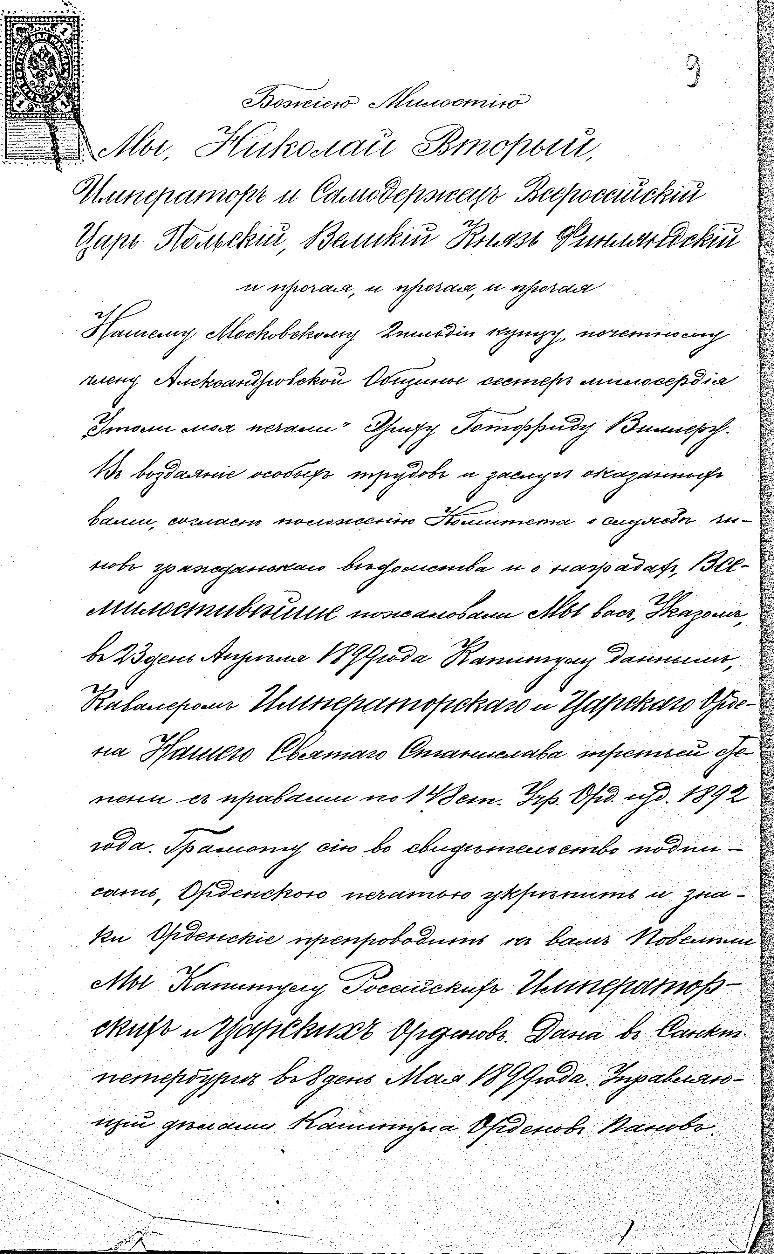 9
Божіею Милостію
Мы, Николай Второй,
Императоръ и Самодержецъ Всероссійскій
Царь Польскій, Великій Князь Финляндскій
и прочая, и прочая, и прочая
Нашему Московскому 2 гильдіи купцу, почетному
члену Александровской Общины сестеръ милосердія
„Утоли моя печали“ Эриху Готфриду Виллеру.
Въ воздаяніе особыхъ трудовъ и заслугъ оказанныхъ
вами, согласно положенію Комитета о службѣ чи-
новъ гражданскаго вѣдомства и о наградахъ, Все-
милостивѣйше пожаловали Мы васъ, Указомъ,
въ 23 день Апрѣля 1899 года Капитулу даннымъ,
Кавалеромъ Императорскаго и Царскаго Орде-
на Нашего Святаго Станислава третьей сте-
пени съ правами по 148 ст. Учр. Орд. изд. 1892
года. Грамоту сію во свидѣтельство подпи-
сать, Орденскою печатью укрѣпить и зна-
ки Орденскіе препроводить къ вамъ Повелѣли
Мы Капитулу Россійскихъ Император-
скихъ и Царскихъ Орденовъ. Дана въ Санкт
петербургѣ въ 8 день Мая 1899 года. Управляю-
щій дѣлами Капитула Орденовъ Пановъ.